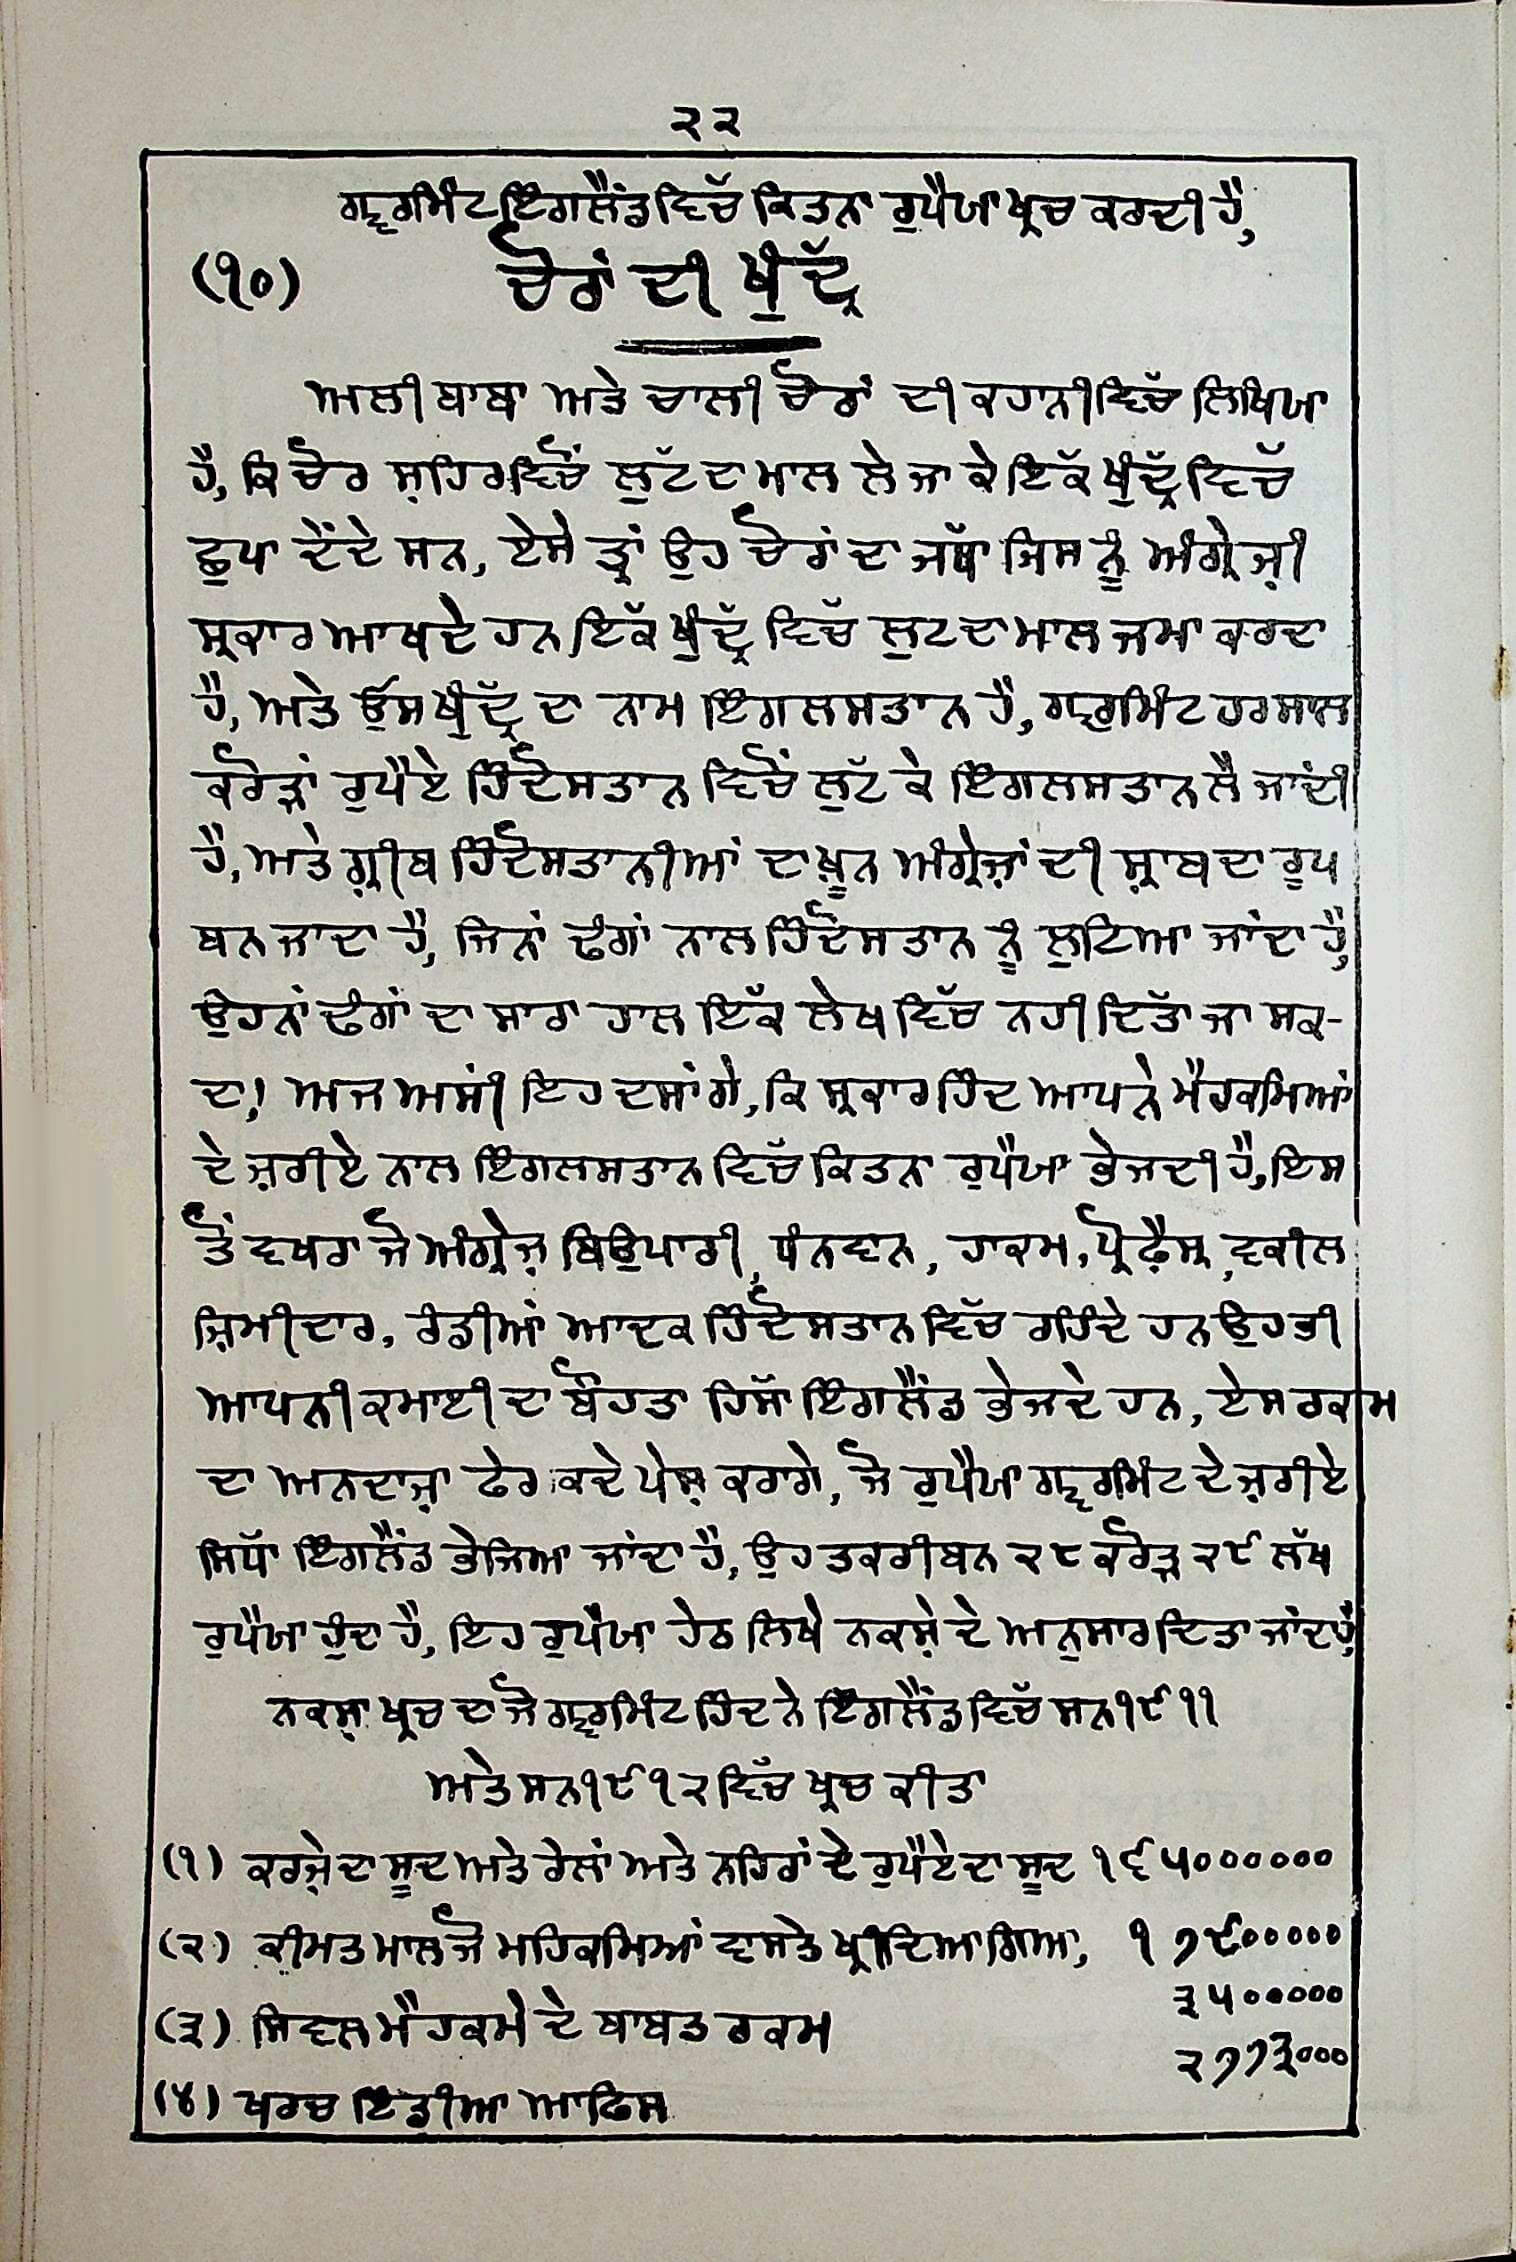 ੨੨
ਗਵ੍ਰਮਿੰਟ ਇੰਗਲੈਂਡ ਵਿੱਚ ਕਿਤਨਾ ਰੁਪੈਯਾ ਖ੍ਰਚ ਕਰਦੀ ਹੈ,
(੧੦) ਚੋਰਾਂ ਦੀ ਖੁੰਦ੍ਰ
ਅਲੀ ਬਾਬਾ ਅਤੇ ਚਾਲੀ ਚੋਰਾਂ ਦੀ ਕਹਾਨੀ ਵਿੱਚ ਲਿਖਿਯਾ
ਹੈ, ਕਿ ਚੋਰ ਸ਼ਹਿਰ ਵਿਚੋਂ ਲੁੱਟ ਦਾ ਮਾਲ ਲੇ ਜਾ ਕੇ ਇੱਕ ਖੁੰਦ੍ਰ ਵਿੱਚ
ਛੁਪਾ ਦੇਂਦੇ ਸਨ, ਏਸੇ ਤ੍ਰਾਂ ਉਹ ਚੋਰਾਂ ਦਾ ਜੱਥਾ ਜਿਸ ਨੂੰ ਅੰਗ੍ਰੇਜ਼ੀ
ਸ੍ਰਕਾਰ ਆਖਦੇ ਹਨ ਇੱਕ ਖੁੰਦ੍ਰ ਵਿੱਚ ਲੁਟ ਦਾ ਮਾਲ ਜਮਾ ਕਰਦਾ
ਹੈ, ਅਤੇ ਉਸ ਖੁੰਦ੍ਰ ਦਾ ਨਾਮ ਇੰਗਲਸਤਾਨ ਹੈ, ਗਵ੍ਰਮਿੰਟ ਹਰਸਾਲ
ਕਰੋੜਾਂ ਰੁਪੈਏ ਹਿੰਦੋਸਤਾਨ ਵਿਚੋਂ ਲੁੱਟ ਕੇ ਇੰਗਲਸਤਾਨ ਲੈ ਜਾਂਦੀ
ਹੈ, ਅਤੇ ਗ਼੍ਰੀਬ ਹਿੰਦੋਸਤਾਨੀਆਂ ਦਾ ਖ਼ੂਨ ਅੰਗ੍ਰੇਜ਼ਾਂ ਦੀ ਸ਼੍ਰਾਬ ਦਾ ਰੂਪ
ਬਨ ਜਾਦਾ ਹੈ, ਜਿਨਾਂ ਢੰਗਾਂ ਨਾਲ ਹਿੰਦੋਸਤਾਨ ਨੂੰ ਲੁਟਿਆ ਜਾਂਦਾ ਹੈ,
ਉਹਨਾਂ ਢੰਗਾਂ ਦਾ ਸਾਰਾ ਹਾਲ ਇੱਕ ਲੇਖ ਵਿੱਚ ਨਹੀ ਦਿੱਤਾ ਜਾ ਸਕ-
ਦਾ! ਅਜ ਅਸੀਂ ਇਹ ਦਸਾਂਗੇ, ਕਿ ਸ੍ਰਕਾਰ ਹਿੰਦ ਆਪਨੇ ਮੈਹਕਮਿਆਂ
ਦੇ ਜ਼ਰੀਏ ਨਾਲ ਇੰਗਲਸਤਾਨ ਵਿੱਚ ਕਿਤਨਾ ਰੁਪੈਯਾ ਭੇਜਦੀ ਹੈ, ਇਸ
ਤੋਂ ਵਖਰਾ ਜੋ ਅੰਗ੍ਰੇਜ਼ ਬਿਉਪਾਰੀ, ਧੰਨਵਾਨ, ਹਾਕਮ, ਪ੍ਰੋਫ਼ੈਸ੍ਰ, ਵਕੀਲ
ਜ਼ਿਮੀਦਾਰ, ਰੰਡੀਆਂ ਆਦਕ ਹਿੰਦੋਸਤਾਨ ਵਿੱਚ ਰਹਿੰਦੇ ਹਨ ਉਹ ਭੀ
ਆਪਨੀ ਕਮਾਈ ਦਾ ਬੌਹਤਾ ਹਿੱਸਾ ਇੰਗਲੈਂਡ ਭੇਜਦੇ ਹਨ, ਏਸ ਰਕਮ
ਦਾ ਅਨਦਾਜ਼ਾ ਫੇਰ ਕਦੇ ਪੇਸ਼ ਕਰਾਗੇ, ਜੋ ਰੁਪੈਯਾ ਗਵ੍ਰਮਿੰਟ ਦੇ ਜ਼ਰੀਏ
ਸਿਧਾ ਇੰਗਲੈਂਡ ਭੇਜਿਆ ਜਾਂਦਾ ਹੈ, ਉਹ ਤਕਰੀਬਨ ੨੮ ਕਰੋੜ ੨੯ ਲੱਖ
ਰੁਪੈਯਾ ਹੁੰਦਾ ਹੈ, ਇਹ ਰੁਪੈਯਾ ਹੇਠ ਲਿਖੇ ਨਕਸ਼ੇ ਦੇ ਅਨੁਸਾਰ ਦਿਤਾ ਜਾਂਦਾ ਹੈ,
ਨਕਸ਼ਾ ਖ੍ਰਚ ਦਾ ਜੋ ਗਵ੍ਰਮਿੰਟ ਹਿੰਦ ਨੇ ਇੰਗਲੈਂਡ ਵਿੱਚ ਸਨ ੧੯੧੧
ਅਤੇ ਸਨ ੧੯੧੨ ਵਿੱਚ ਖ੍ਰਚ ਕੀਤਾ
(੧) ਕਰਜ਼ੇ ਦਾ ਸੂਦ ਅਤੇ ਰੇਲਾਂ ਅਤੇ ਨਹਿਰਾਂ ਦੇ ਰੁਪੈਏ ਦਾ ਸੂਦ ੧੬੫੦੦੦੦੦੦
(੨) ਕੀਮਤ ਮਾਲ ਜੋ ਮਹਿਕਮਿਆਂ ਵਾਸਤੇ ਖ੍ਰੀਦਿਆ ਗਿਆ, ੧੭੯੦੦੦੦੦
(੩) ਸਿਵਲ ਮੈਹਕਮੇ ਦੇ ਬਾਬਤ ਰਕਮ ੩੫੦੦੦੦੦
(੪) ਖਰਚ ਇੰਡੀਆ ਆਫਿਸ ੨੭੭੩੦੦੦